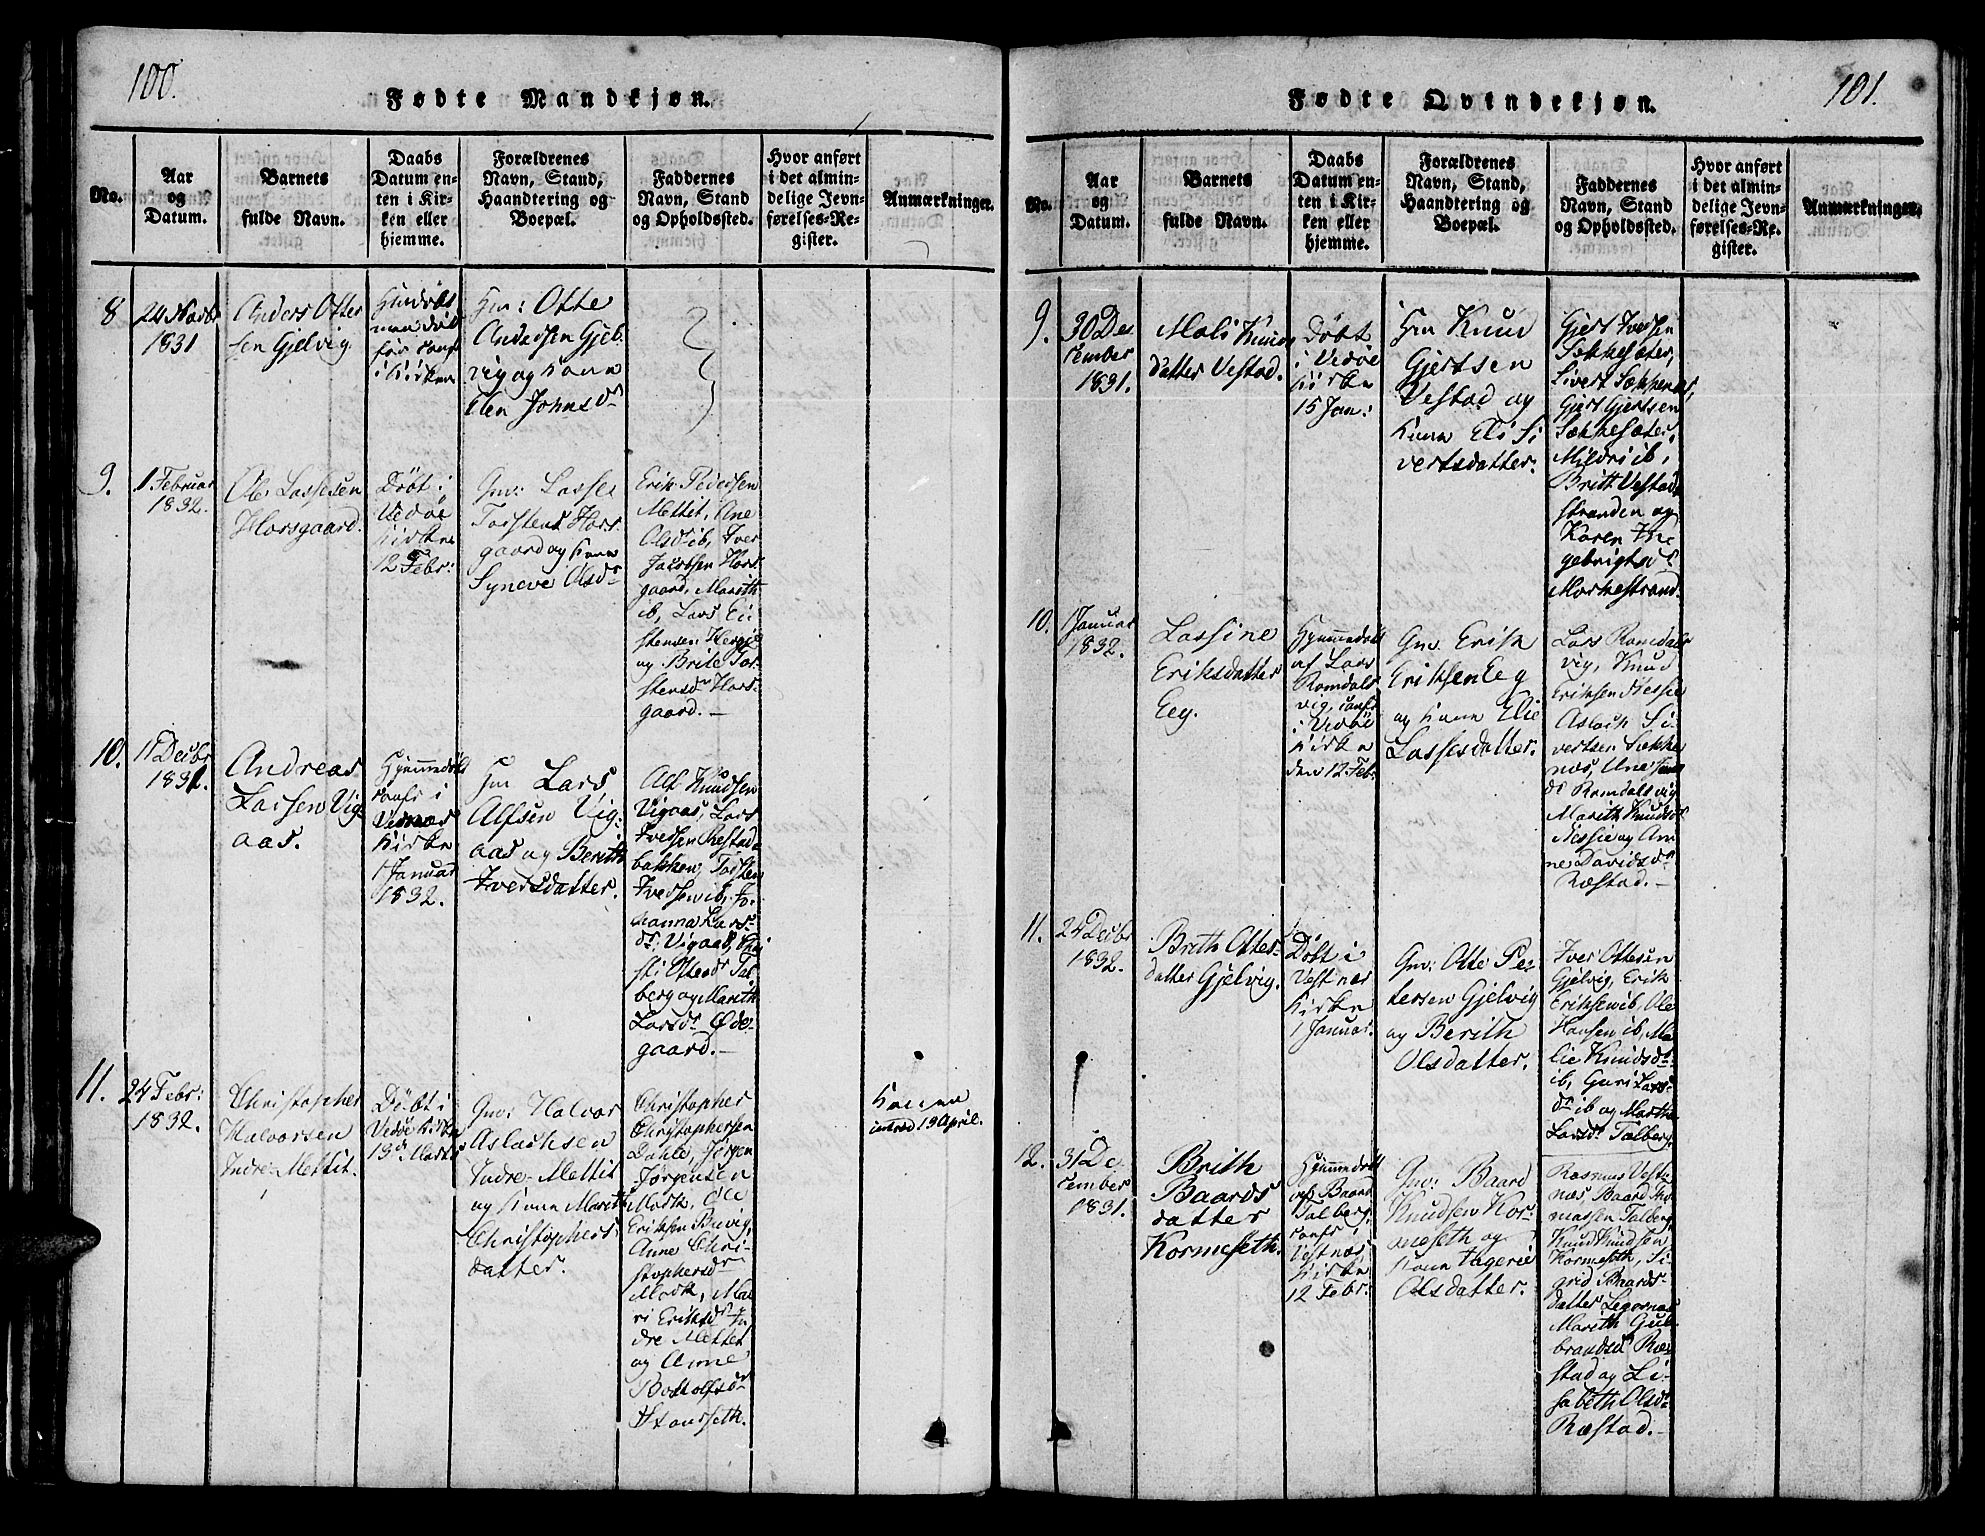 100.
Fødte Mandkjøn.
No.
Aar
og
Datum.
Barnets
fulde Navn.
Daabs
Datum en-
ten i Kir-
ken eller
hjemme.
Forældrenes
Navn, Stand,
Haandtering og
Boepæl.
Faddernes
Navn, Stand
og Opholdssted.
Hvor anført
i det almin-
delige Jevn-
førelses-Re-
gister.
Anmærkninger.
8
24 Novbr
1831
Anders Otter
sen Gjelvig
i Kirken
Gm: Otte
Andersen Gjel-
vig og Kone
Johnsdr
9.
1 Februar
1832.
Ole Lassesen
Horsgaard.
Døbt i
Vedøe
Kirke
12 Febr:
Gm: Lasse
Torstens Hors
gaard og Kone
Syneve Olsdr
Erik Pedersen
Mettit, Ane
Olsd ib, Iver
Jacobsen Hors
gaard, Marith
ib, Lars Ei
stensen
og Brite Tor-
stensdr Hors-
gaard.
10.
11 Decbr
1831.
Andreas
Larsen Vig
aas.
Hjemmedøbt
conf i
Vednes
Kirke
1 Januar
1832.
Gm Lars
Alfsen Vig-
aas og Berith
Iversdatter.
Alf Knudsen
Vigaas, Lars
Iversen Restad
bakken, Torsten
Iversen ib, Jo-
hanna Lars
dr. Vigaas,
sti Ottesdr Tal
berg og Marith
Larsdr Øde-
gaard.
11.
24 Febr:
1832.
Christopher
Halvorsen
Indre-Mettit.
Døbt i
Vedøe Kirke
Gm: Halvor
Aslachsen
Indre-Mettit
og Kone Marith
Christophers
datter.
Christopher
Christophersen
Dahle, Jørgen
Jørgensen
Mork, Ole
Eriksen Buvig,
Anne Chri-
stophersdr
Mork, Ma-
ri Eriksdr In
dre Mettet
og Anne
Botolfsdr
Stauseth.
Konen
introd 19 April.
101.
Fødte Qvindekjøn.
No.
Aar
og
Datum.
Barnets
fulde Navn.
Daabs
Datum en-
ten i Kir-
ken eller
hjemme.
Forældrenes
Navn, Stand,
Haandtering og
Boepæl.
Faddernes
Navn, Stand
og Opholdssted.
Hvor anført
i det almin-
delige Jevn-
førelses-Re-
gister.
Anmærkninger.
9.
30 De
cember
1831.
Mali Knuds
datter Vestad.
Døbt
i Vedøe
Kirke
15 Jan:
Gm Knud
Gjertsen
Vestad og
Kone Eli Si
vertsdatter.
Gjert Iversen
Sekkesæter,
Sivert Sekkenæs,
Gjert Gjertsen
Sekkesæter,
Mildri ib,
Brith Vestad
stranden og
Karen In
gebrigtsdr
Morkestrand.
10.
1 Januar
1832.
Lassine
Eriksdatter
Eeg.
Hjemmedøbt
af Lars
Romdals
vig, conf
i Vedøe
Kirke
den 12 Febr
Gm. Erik
Eriksen Eeg
og Kone Elie
Lassesdatter.
Lars Romdals
vig, Knud
Eriksen Nessie
Aslach Si-
vertsen Sekke
næs, Ane
dr Romdalsvig
Marith Knudsdr
Nessie og An
ne Davidsdr
Ræstad.
11.
24 Decbr
1832.
Brith Ottes-
datter Gjelvig.
Døbt i
Vestnes
Kirke
1 Januar.
Gm: Otte Pe-
tersen Gjelvig
og Berith
Olsdatter.
Iver Ottesen
Gjelvig, Erik
Eriksen ib, Ole
Hansen ib, Ma
lie Knudsdr
ib, Guri Lars-
dr ib og Marthe
Larsdr Talberg.
12.
31 De
cember
1831.
Brith
Baards
datter
Kormeseth.
Hjemmedøbt
af Baard
Talberg,
conf i
Vestnæs
Kirke
12 Febr.
Gm: Baard
Knudsen Kor-
meseth og
Kone Ingerie
Olsdatter.
Rasmus Vest-
næs, Baard Tho
massen Talberg,
Knud Knudsen
Kormeseth, Si-
grid Baards-
datter
Marith Gul-
brandsd Ræ-
stad og Li-
sabeth Olsdr
Ræstad.